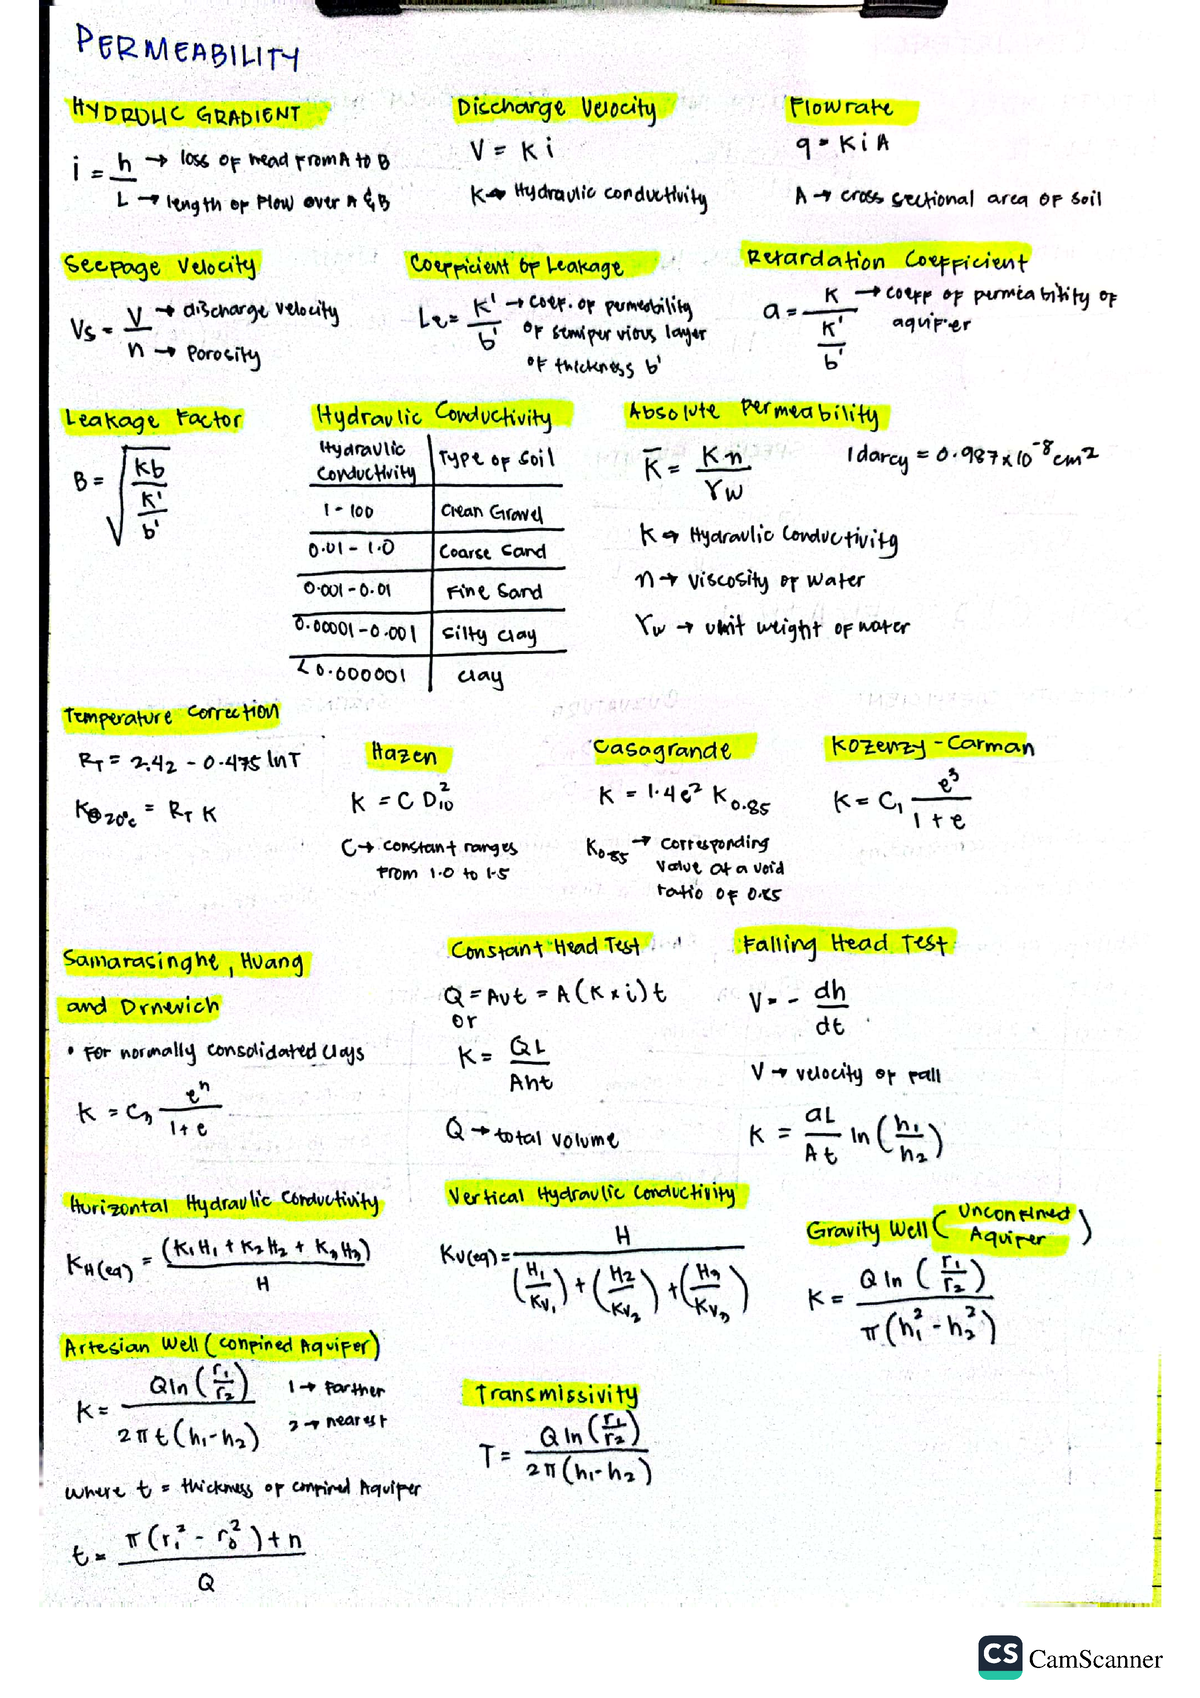 PERMEABILITY
HYDRULIC GRADIENT
i = h/L
h → loss of head from A to B
L → length of flow over A & B
Discharge Velocity
V = K i
K → Hydraulic conductivity
Flowrate
q = K i A
A → cross sectional area of soil
Seepage Velocity
Vs = V/n
V → discharge velocity
n → Porosity
Coefficient of Leakage
Le = K'/b'
K' → coef. of permeability
of semipervious layer
of thickness b'
Retardation Coefficient
a = K/(K'/b')
K → coeff of permeability of
aquifer
Leakage Factor
B = √(kb/(K'/b'))
Hydraulic Conductivity
Hydraulic Conductivity | Type of Soil
1 - 100 | Clean Gravel
0.01 - 1.0 | Coarse Sand
0.001 - 0.01 | Fine Sand
0.00001 - 0.001 | Silty clay
< 0.000001 | clay
Absolute Permeability
K̅ = Kn/γw
1 darcy = 0.987 x 10⁻⁸ cm²
K → Hydraulic Conductivity
n → viscosity of water
γw → unit weight of water
Temperature Correction
R_T = 2.42 - 0.475 ln T
K@20°c = R_T K
Hazen
K = C D₁₀²
C → constant ranges
from 1.0 to 1.5
Casagrande
K = 1.4 e² K₀.₈₅
K₀.₈₅ → corresponding
value at a void
ratio of 0.85
Kozenzy - Carman
K = C₁ e³/(1 + e)
Samarasinghe, Huang
and Drnevich
• For normally consolidated clays
K = C₃ eⁿ/(1 + e)
Constant Head Test
Q = Avt = A(K x i)t
or
K = QL/Aht
Q → total volume
Falling Head Test
V = - dh/dt
V → velocity of fall
K = aL/At ln(h₁/h₂)
Horizontal Hydraulic Conductivity
K_H(eq) = (K₁H₁ + K₂H₂ + K₃H₃)/H
Vertical Hydraulic Conductivity
Kv(eq) = H/((H₁/Kv₁) + (H₂/Kv₂) + (H₃/Kv₃))
Gravity Well (Unconfined
Aquifer)
K = Q ln(r₁/r₂)/π(h₁² - h₂²)
Artesian Well (Confined Aquifer)
K = Q ln(r₁/r₂)/2πt(h₁-h₂)
1 → Farther
2 → nearest
where t = thickness of confined Aquifer
t = π(r₁² - r₀²)+n/Q
Transmissivity
T = Q ln(r₁/r₂)/2π(h₁-h₂)
CS CamScanner